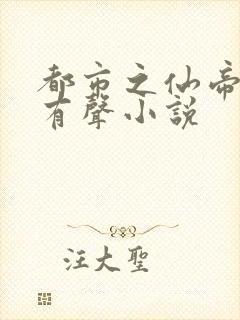 都市之仙帝
有聲小說
汪大聖